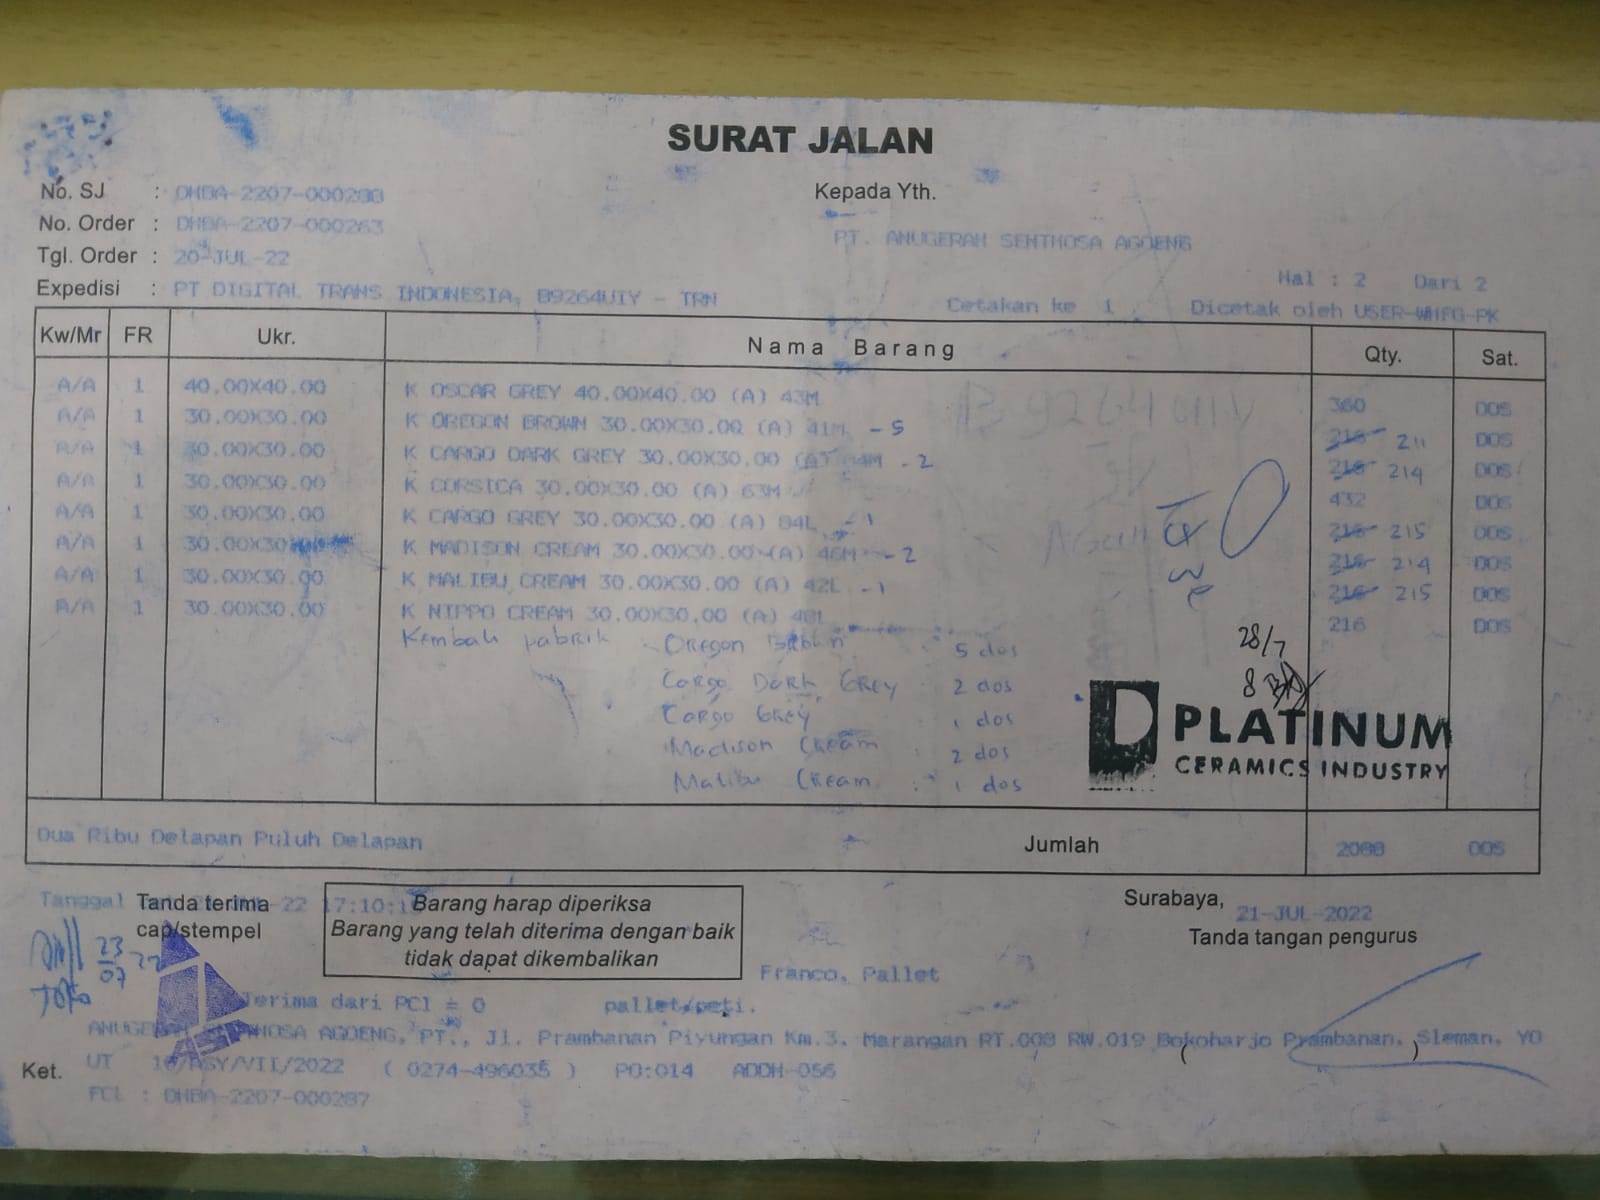 SURAT JALAN
No. SJ : DHBA-2207-000288
Kepada Yth.
No. Order : DHBA-2207-000263
PT. ANUGERAH SENTHOSA AGOENG
Tgl. Order : 20-JUL-22
Hal : 2 Dari 2
Expedisi : PT DIGITAL TRANS INDONESIA, B9264UIY - TRN
Cetakan ke 1 Dicetak oleh USER-WHFG-PK
Kw/Mr FR Ukr. Nama Barang Qty. Sat.
A/A 1 40.00X40.00 K OSCAR GREY 40.00X40.00 (A) 43M 360 DOS
A/A 1 30.00X30.00 K OREGON BROWN 30.00X30.00 (A) 41M - 5 216 211 DOS
A/A 1 30.00X30.00 K CARGO DARK GREY 30.00X30.00 (A) - 2 216 214 DOS
A/A 1 30.00X30.00 K CORSICA 30.00X30.00 (A) 63M 432 DOS
A/A 1 30.00X30.00 K CARGO GREY 30.00X30.00 (A) 84L - 1 216 215 DOS
A/A 1 30.00X30.00 K MADISON CREAM 30.00X30.00 (A) 46M - 2 216 214 DOS
A/A 1 30.00X30.00 K MALIBU CREAM 30.00X30.00 (A) 42L - 1 216 215 DOS
A/A 1 30.00X30.00 K NIPPO CREAM 30.00X30.00 (A) 216 DOS
Kembali pabrik Oregon 5 dos
Cargo Dark GREY 2 dos
Cargo GREY 1 dos
Madison Cream : 2 dos
Malibu Cream : 1 dos
28/7
8
PLATINUM
CERAMICS INDUSTRY
Dua Ribu Delapan Puluh Delapan Jumlah 2088 DOS
Tanggal 22 17:10:1
Tanda terima
cap/stempel
Barang harap diperiksa
Barang yang telah diterima dengan baik
tidak dapat dikembalikan
Surabaya, 21-JUL-2022
Tanda tangan pengurus
23
07 22
Franco, Pallet
Terima dari PCI = 0 pallet/peti.
ANUGERAH SENTHOSA AGOENG, PT., Jl. Prambanan Piyungan Km.3. Marangan RT.008 RW.019 Bokoharjo Prambanan, Sleman, YO
Ket. UT 16/ASY/VII/2022 ( 0274-496035 ) PO:014 ADDH-056
FCL : DHBA-2207-000287